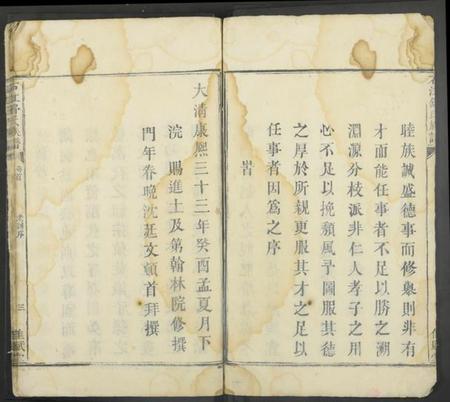 睦族誠盛德事而修舉則非有
才而能任事者不足以勝之溯
淵源分枝派非仁人孝子之用
心不足以挽頽風予固服其德
之厚於所親更服其才之足以
任事者因為之序
旹
大清康熙三十三年癸酉孟夏月下
浣 賜進士及第翰林院修撰
門年眷晩沈廷文頓首拜撰
三